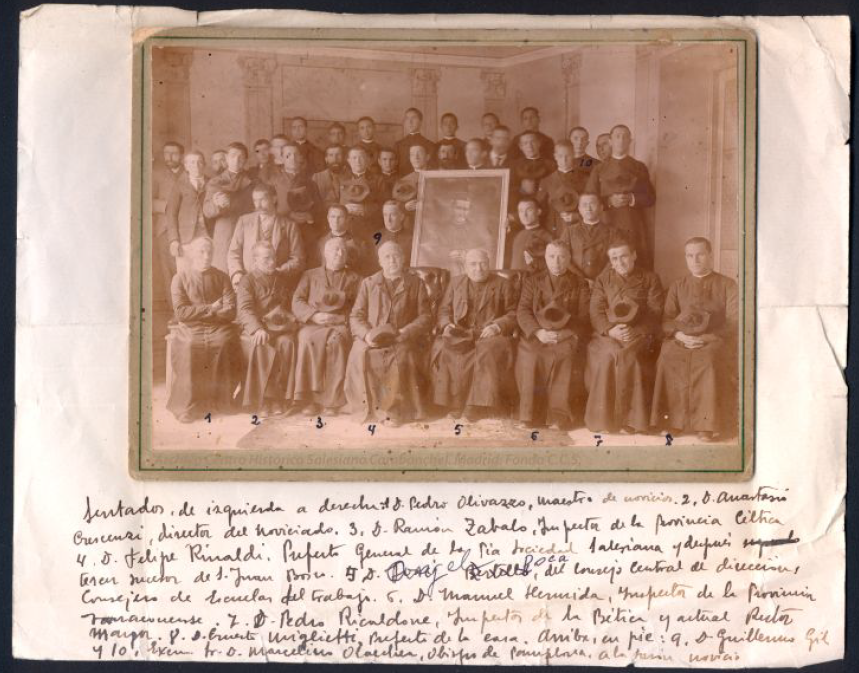 9
10
1 2 3 4 5 6 7 8
Archivo Centro Histórico Salesiano Carabanchel. Madrid. Fondo C.C.S.
Sentados, de izquierda a derecha: 1 D. Pedro Olivazzo, maestro de novicios. 2, D. Anastasio
Crescenzi, director del Noviciado. 3, D. Ramón Zabalo, Inspector de la Provincia Céltica
4. D. Felipe Rinaldi. Prefecto General de la Pía Sociedad Salesiana y después
tercer sucesor de S. Juan Bosco. 5 D. Bertello, del consejo central de dirección,
Consejero de Escuelas del trabajo. 6. D. Manuel Hermida, Inspector de la Provincia
Tarraconense. 7. D. Pedro Ricaldone, Inspector de la Bética y actual Rector
Mayor. 8. D. Ernesto Miglietti, Prefecto de la casa. Arriba, en pie: 9, D Guillermo Gil
y 10, Excmo Sr. D. Marcelino Olaechea, Obispo de Pamplona, a la sazón novicio